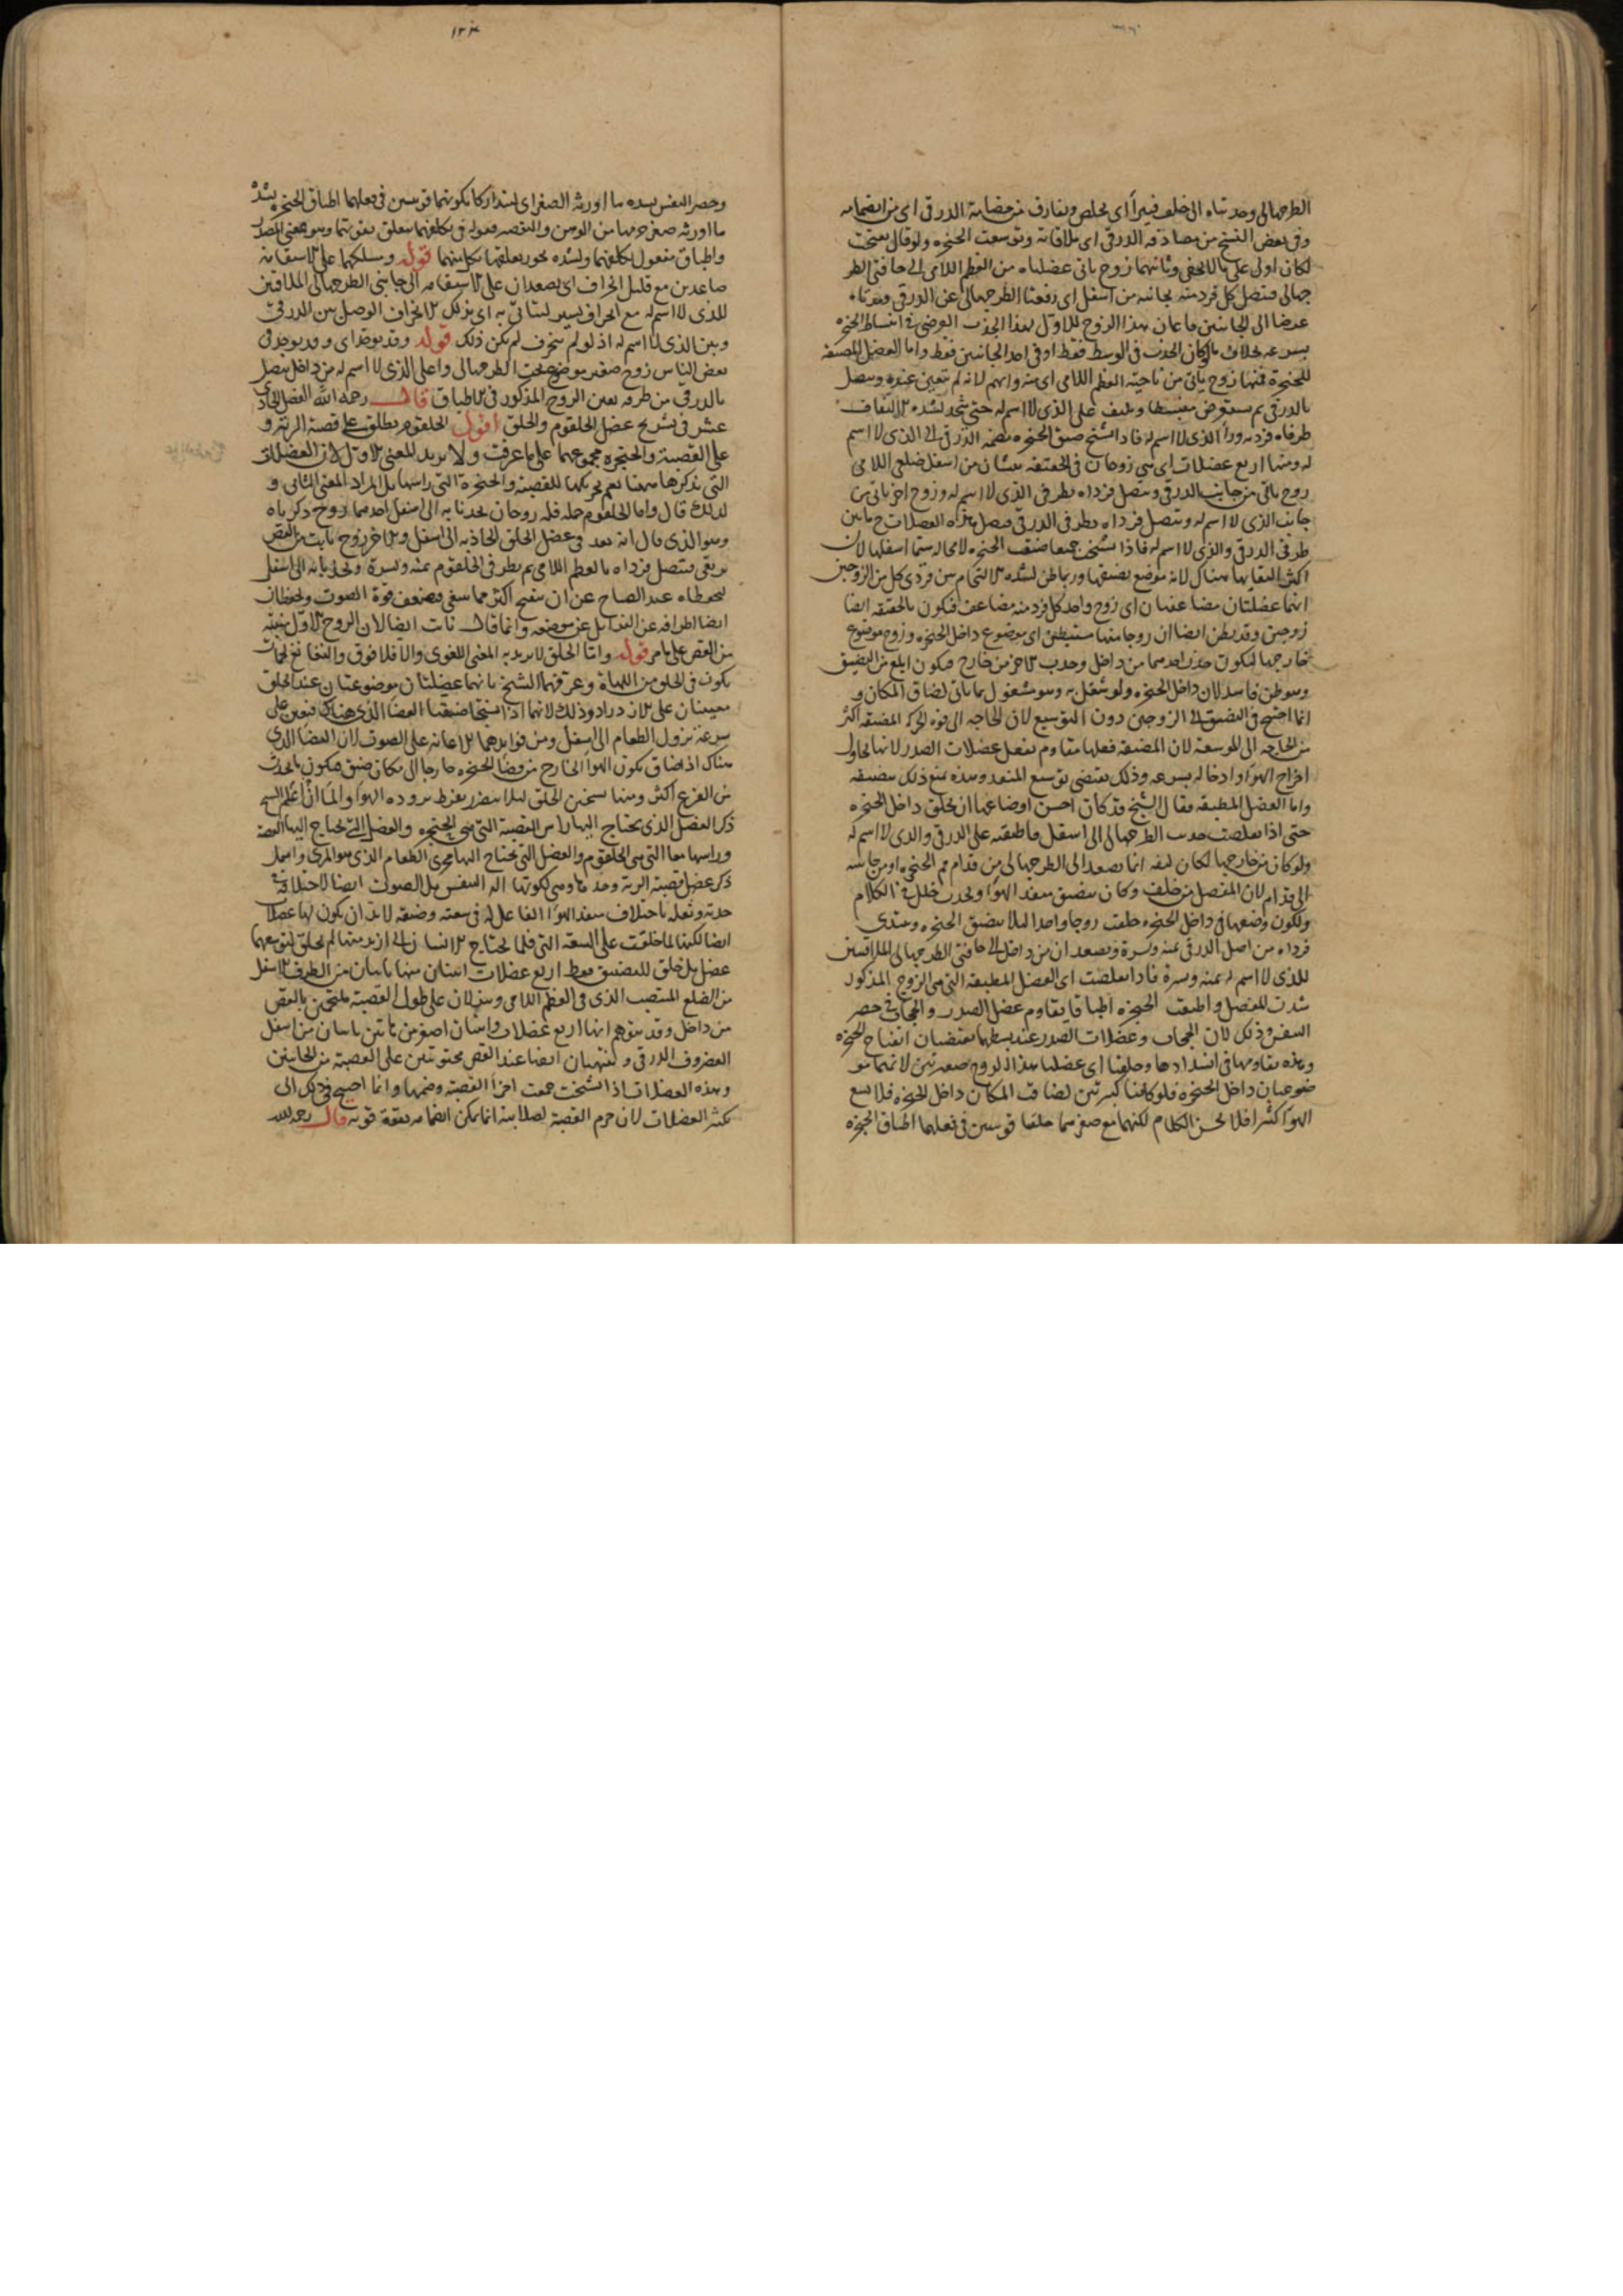 الطرجهالى وحدبتاه الى خلف فيبرأ اى يخلص ويفارق من مضامة الدرقى اى من انضمامه
وفى بعض النسخ من مصادفه الدرقى اى ملاقاته وتوسعت الحنجره ولو قال بعنحت
لكان اولى على ما لا يخفى وثانيهما زوج ياتى عضلتاه من العظم اللامى الى حافتى الطر
جهالى فتصل كل فرد منه بجانبه من اسفل اى رفعتا الطرجهالى عن الدرقى ومدتاه
عرضا الى الجانبين فاعان هذا الزوج للاول بهذا الجذب العرضى فى انبساط الحنجره
بسرعه بخلاف ما لو كان الجذب فى الوسط فقط او فى احد الجانبين فقط واما العضل المضيقه
للحنجرة فمنها زوج ياتى من ناحية العظم اللامى اى منه وابهم لانه لم يتعين عنده ويتصل
بالدرقى ثم يستعرض منبسطا ويلتف على الذى لا اسم له حتى يتحد لشده الالتفاف
طرفاه فرديه ورآ الذى لا اسم له فاذا تشنج ضيق الحنجره بضمه الدرقى الى الذى لا اسم
له ومنها اربع عضلات اى هى زوجان فى الحقيقه ينشان من اسفل ضلعى اللامى
زوج ياتى من جانب الدرقى ويتصل فرداه بطرفى الذى لا اسم له وزوج اخر ياتى من
جانب الذى لا اسم له ويتصل فرداه بطرفى الدرقى فيصل هذه العضلات ح ما بين
طرفى الدرقى والذى لا اسم له فاذا تشنج جميعا ضيقت الحنجره لا محاله سيما اسفلها لان
اكثر التقايها هناك لانه موضع يضيقها ورباطن لشده الالتحام بين فردى كل من الزوجين
انهما عضلتان مضاعفتان اى زوج واحد كل فرد منه مضاعف فيكون بالحقيقه ايضا
زوجين وقد يظن ايضا ان زوجا منها مستبطن اى موضوع داخل الحنجره وزوج موضوع
خارجها ليكون جذب احدهما من داخل وجذب الاخر من خارج فيكون ابلغ من التضييق
وهو ظن فاسد لان داخل الحنجره ولو شغل به وهو مشغول بما ياتى لضاق المكان و
انما احتيج فى التضييق الى الزوجين دون التوسيع لان الحاجه الى قوه الحركه المضيقه اكثر
من الحاجه الى الموسعه لان المضيقه فعلها مقاوم لفعل عضلات الصدر لانها تحاول
اخراج الهوآ او ادخاله بسرعه وذلك يقتضى توسع المنفذ وهذه تمنع ذلك بتضييقه
واما العضل المطبقه فقال الشيخ قد كان احسن اوضاعها ان تخلق داخل الحنجره
حتى اذا تقلصت جذبت الطرجهالى الى اسفل فاطبقته على الدرقى والذى لا اسم له
ولو كان من خارجها لكان ليفه انما يصعد الى الطرجهالى من قدام فم الحنجره او من جانبيه
الى قدام لان المفصل من خلف وكان يضيق منفذ الهوآ ويحدث خلل فى الكلام
ولكون وضعها فى داخل الحنجره خلقت زوجا واحدا لئلا يضيق الحنجره ويبتدى
فرداه من اصل الدرقى يمنه ويسرة ويصعدان من داخل الى حافتى الطرجهالى الملاقيتين
للذى لا اسم له يمنه ويسرة فاذا تقلصت اى العضل المطبقه التى هى الزوج المذكور
شدت المفصل واطبقت الحنجره اطباقا يقاوم عضل الصدر والحجاب فى حصر
النفس وذلك لان الحجاب وعضلات الصدر عند بسطها يقتضيان انفتاح الحنجره
وهذه يقاومها فى انسدادها وخلقتا اى عضلتا هذا الزوج صغيرتين لانهما مو
ضوعتان داخل الحنجره فلو كانتا كبيرتين لضاق المكان داخل الحنجره فلا يسع
الهوآ كثيرا فلا يحسن الكلام لكنهما مع صغرهما خلقتا قويتين فى فعلهما اطباق الحنجره
١٢٤
وحصر النفس بشده ما اورثه الصغر اى ليتداركا بكونهما قويتين فى فعلهما اطباق الحنجره بشده
ما اورثه صغر حجمهما من الوهن والتقصير فقوله فى تكلفهما يتعلق بقويتهما وهو بمعنى المصدر
واطباق مفعول تكلفهما وبشده يجوز تعلقها بكل منهما قوله ومسلكهما على الاستقامه
صاعدين مع قليل انحراف اى يصعدان على الاستقامه الى جانبى الطرجهالى الملاقيتين
للذى لا اسم له مع انحراف يسير ليتاتى به اى بذلك الانحراف الوصل بين الدرقى
وبين الذى لا اسم له اذ لو لم ينحرف لم يكن ذلك قوله وقد يوجد اى وقد يوجد فى
بعض الناس زوج صغير موضوع تحت الطرجهالى واعلى الذى لا اسم له من داخل يتصل
بالدرقى من طرفه يعين الزوج المذكور فى الاطباق قال رحمه الله الفصل الحادى
عشر فى تشريح عضل الحلقوم والحلق اقول الحلقوم يطلق على قصبة الرئه و
على القصبة والحنجره مجموعهما على ما عرفت ولا يريد المعنى الاول لان العضل
التى يذكرها ههنا يعم تحريكها للقصبة والحنجرة التى راسها بل المراد المعنى الثانى و
لذلك قال واما الحلقوم جمله فله زوجان يجذبانه الى اسفل احدهما زوج ذكرناه
وهو الذى قال انه يعد فى عضل الحلق الجاذبه الى اسفل والاخر زوج نابت من القص
يرتقى فيتصل فرداه بالعظم اللامى ثم بطرفى الحلقوم يمنه ويسرة ويجذبانه الى اسفل
ليحفظاه عند الصياح عن ان ينفتح اكثر مما ينبغى فيضعف قوة الصوت ويحفظان
ايضا اطرافه عن التزايل عن موضعه وانما قال نابت ايضا لان الزوج الاول منبته
من القص على ما مر قوله واما الحلق لا يريد به المعنى اللغوى والا فلا فوق والنغانغ لحمات
يكون فى الحلق من اللهاة وعرفهما الشيخ بانهما عضلتان موضوعتان عند الحلق
معينتان على الازدراد وذلك لانهما اذا تشنجتا ضيقتا الفضا الذى هناك فيعين على
سرعة نزول الطعام الى اسفل ومن فوايدهما الاعانه على الصوت لان الفضا الذى
هناك اذا ضاق يكون الهوا الخارج من فضا الحنجره خارجا الى مكان ضيق فيكون ما يحدث
من القرع اكثر ومنها تسخين الحلق لئلا يتضرر بفرط بروده الهوآ واعلم الشيخ
ذكر العضل الذى يحتاج اليها راس القصبة التى هى الحنجره والعضل التى يحتاج اليها القصبة
وراسها معا التى هى الحلقوم والعضل التى يحتاج اليها مجرى الطعام الذى هو المرى واهمل
ذكر عضل قصبة الريه وحدها وهى لكونها الة النفس بل الصوت ايضا لاختلاف
حدته وثقله باختلاف منفذ الهوآ الفاعل له فى سعته وضيقه لا بد ان يكون لها عضلا
ايضا لكنها لما خلقت على السعة التى قلما يحتاج الانسان الى ازيد منها لم يخلق لتوسيعها
عضل بل خلق للتضييق فقط اربع عضلات اثنتان منها ياتيان من الطرف الاسفل
من الضلع المنتصب الذى فى العظم اللامى وينزلان على طول القصبة ملتحمين بالقص
من داخل وقد يتوهم انها اربع عضلات واثنتان اصغر من هاتين ياتيان من اسفل
الغضروف الدرقى وينتهيان ايضا عند القص محتويتين على القصبة من الجانبين
وهذه العضلات اذا تشنجت جمعت اجزآ القصبة وضمها وانما احتيج فى ذلك الى
تكثر العضلات لان جرم القصبة لصلابته انما يمكن انضمامه بقوة قويه قال رحمه الله